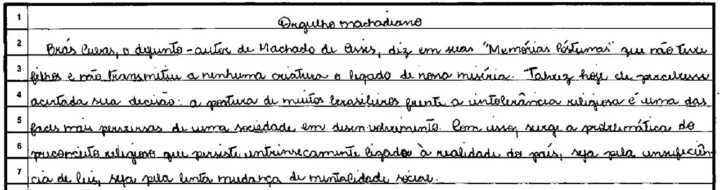 1 Orgulho machadiano
2 Brás Cubas, o defunto-autor de Machado de Assis, diz em suas "Memórias Póstumas" que não teve
3 filhos e não transmitiu a nenhuma criatura o legado de nossa miséria. Talvez hoje ele percebesse
4 acertada sua decisão: a postura de muitos brasileiros frente a intolerância religiosa é uma das
5 faces mais perversas de uma sociedade em desenvolvimento. Com isso, surge a problemática do
6 preconceito religioso que persiste intrinsecamente ligado à realidade do país, seja pela insuficiên-
7 cia de leis, seja pela lenta mudança de mentalidade social.